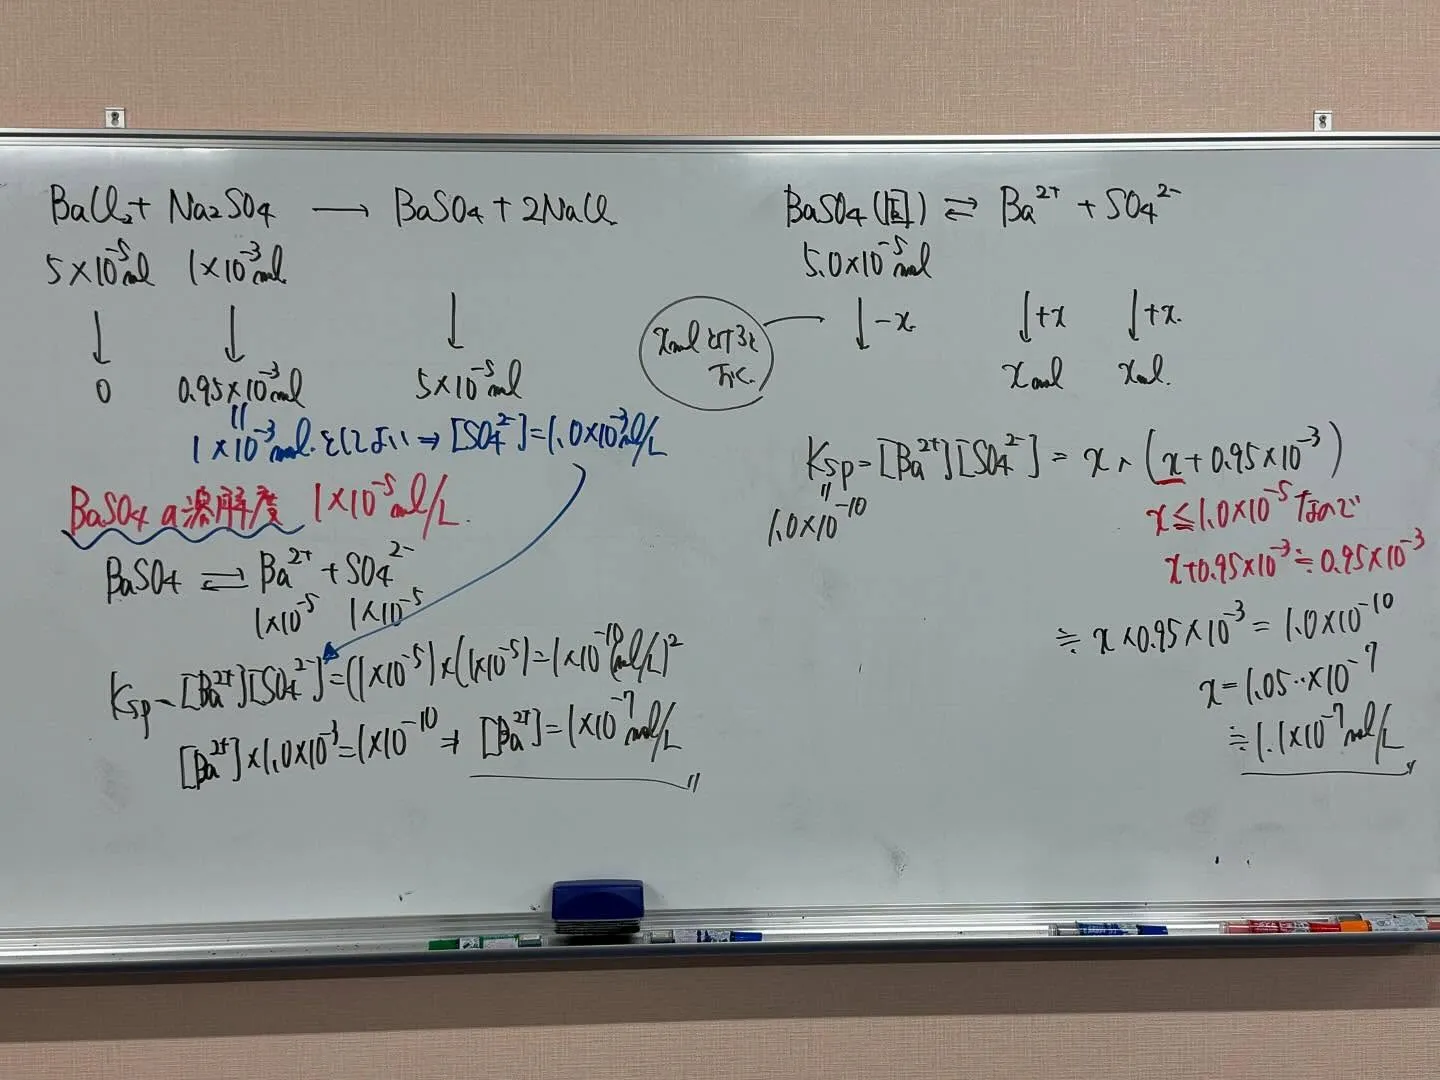 BaCl₂ + Na₂SO₄ → BaSO₄ + 2NaCl
5×10⁻⁵mol 1×10⁻³mol
↓ ↓ ↓
0 0.95×10⁻³mol 5×10⁻⁵mol
〃
1×10⁻³mol としてよい ⇒ [SO₄²⁻]=1.0×10⁻³mol/L
BaSO₄の溶解度 1×10⁻⁵mol/L
BaSO₄ ⇄ Ba²⁺ + SO₄²⁻
1×10⁻⁵ 1×10⁻⁵
Ksp=[Ba²⁺][SO₄²⁻]=(1×10⁻⁵)×(1×10⁻⁵)=1×10⁻¹⁰(mol/L)²
[Ba²⁺]×1.0×10⁻³=1×10⁻¹⁰ ⇒ [Ba²⁺]=1×10⁻⁷mol/L
BaSO₄(固) ⇄ Ba²⁺ + SO₄²⁻
5.0×10⁻⁵mol
↓-x ↓+x ↓+x
xmol とけると
xmol xmol
Ksp=[Ba²⁺][SO₄²⁻]=x×(x+0.95×10⁻³)
〃
1.0×10⁻¹⁰
x≦1.0×10⁻⁵なので
x+0.95×10⁻³≒0.95×10⁻³
≒x×0.95×10⁻³=1.0×10⁻¹⁰
x=1.05‥×10⁻⁷
≒1.1×10⁻⁷mol/L